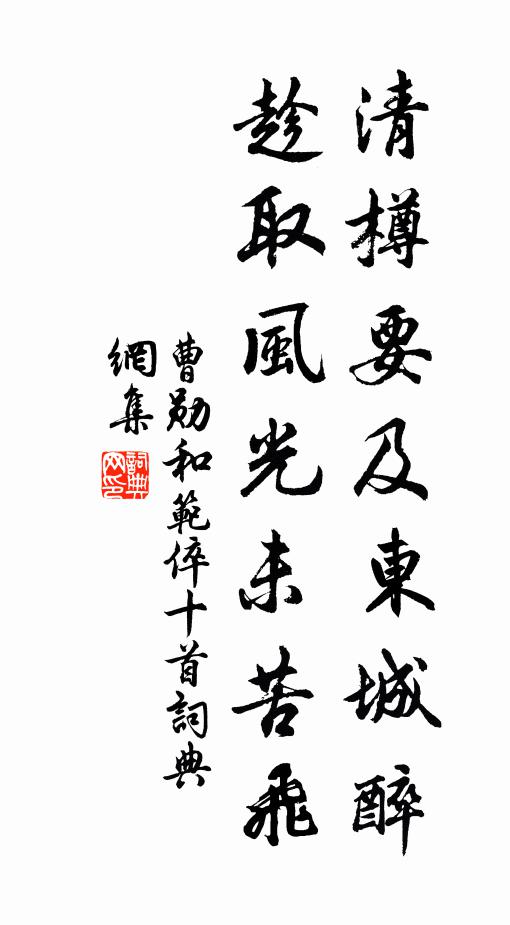 清樽要及東城醉
趁取風光未苦飛
曹勛和範倅十首詞典
網集
詞典網印